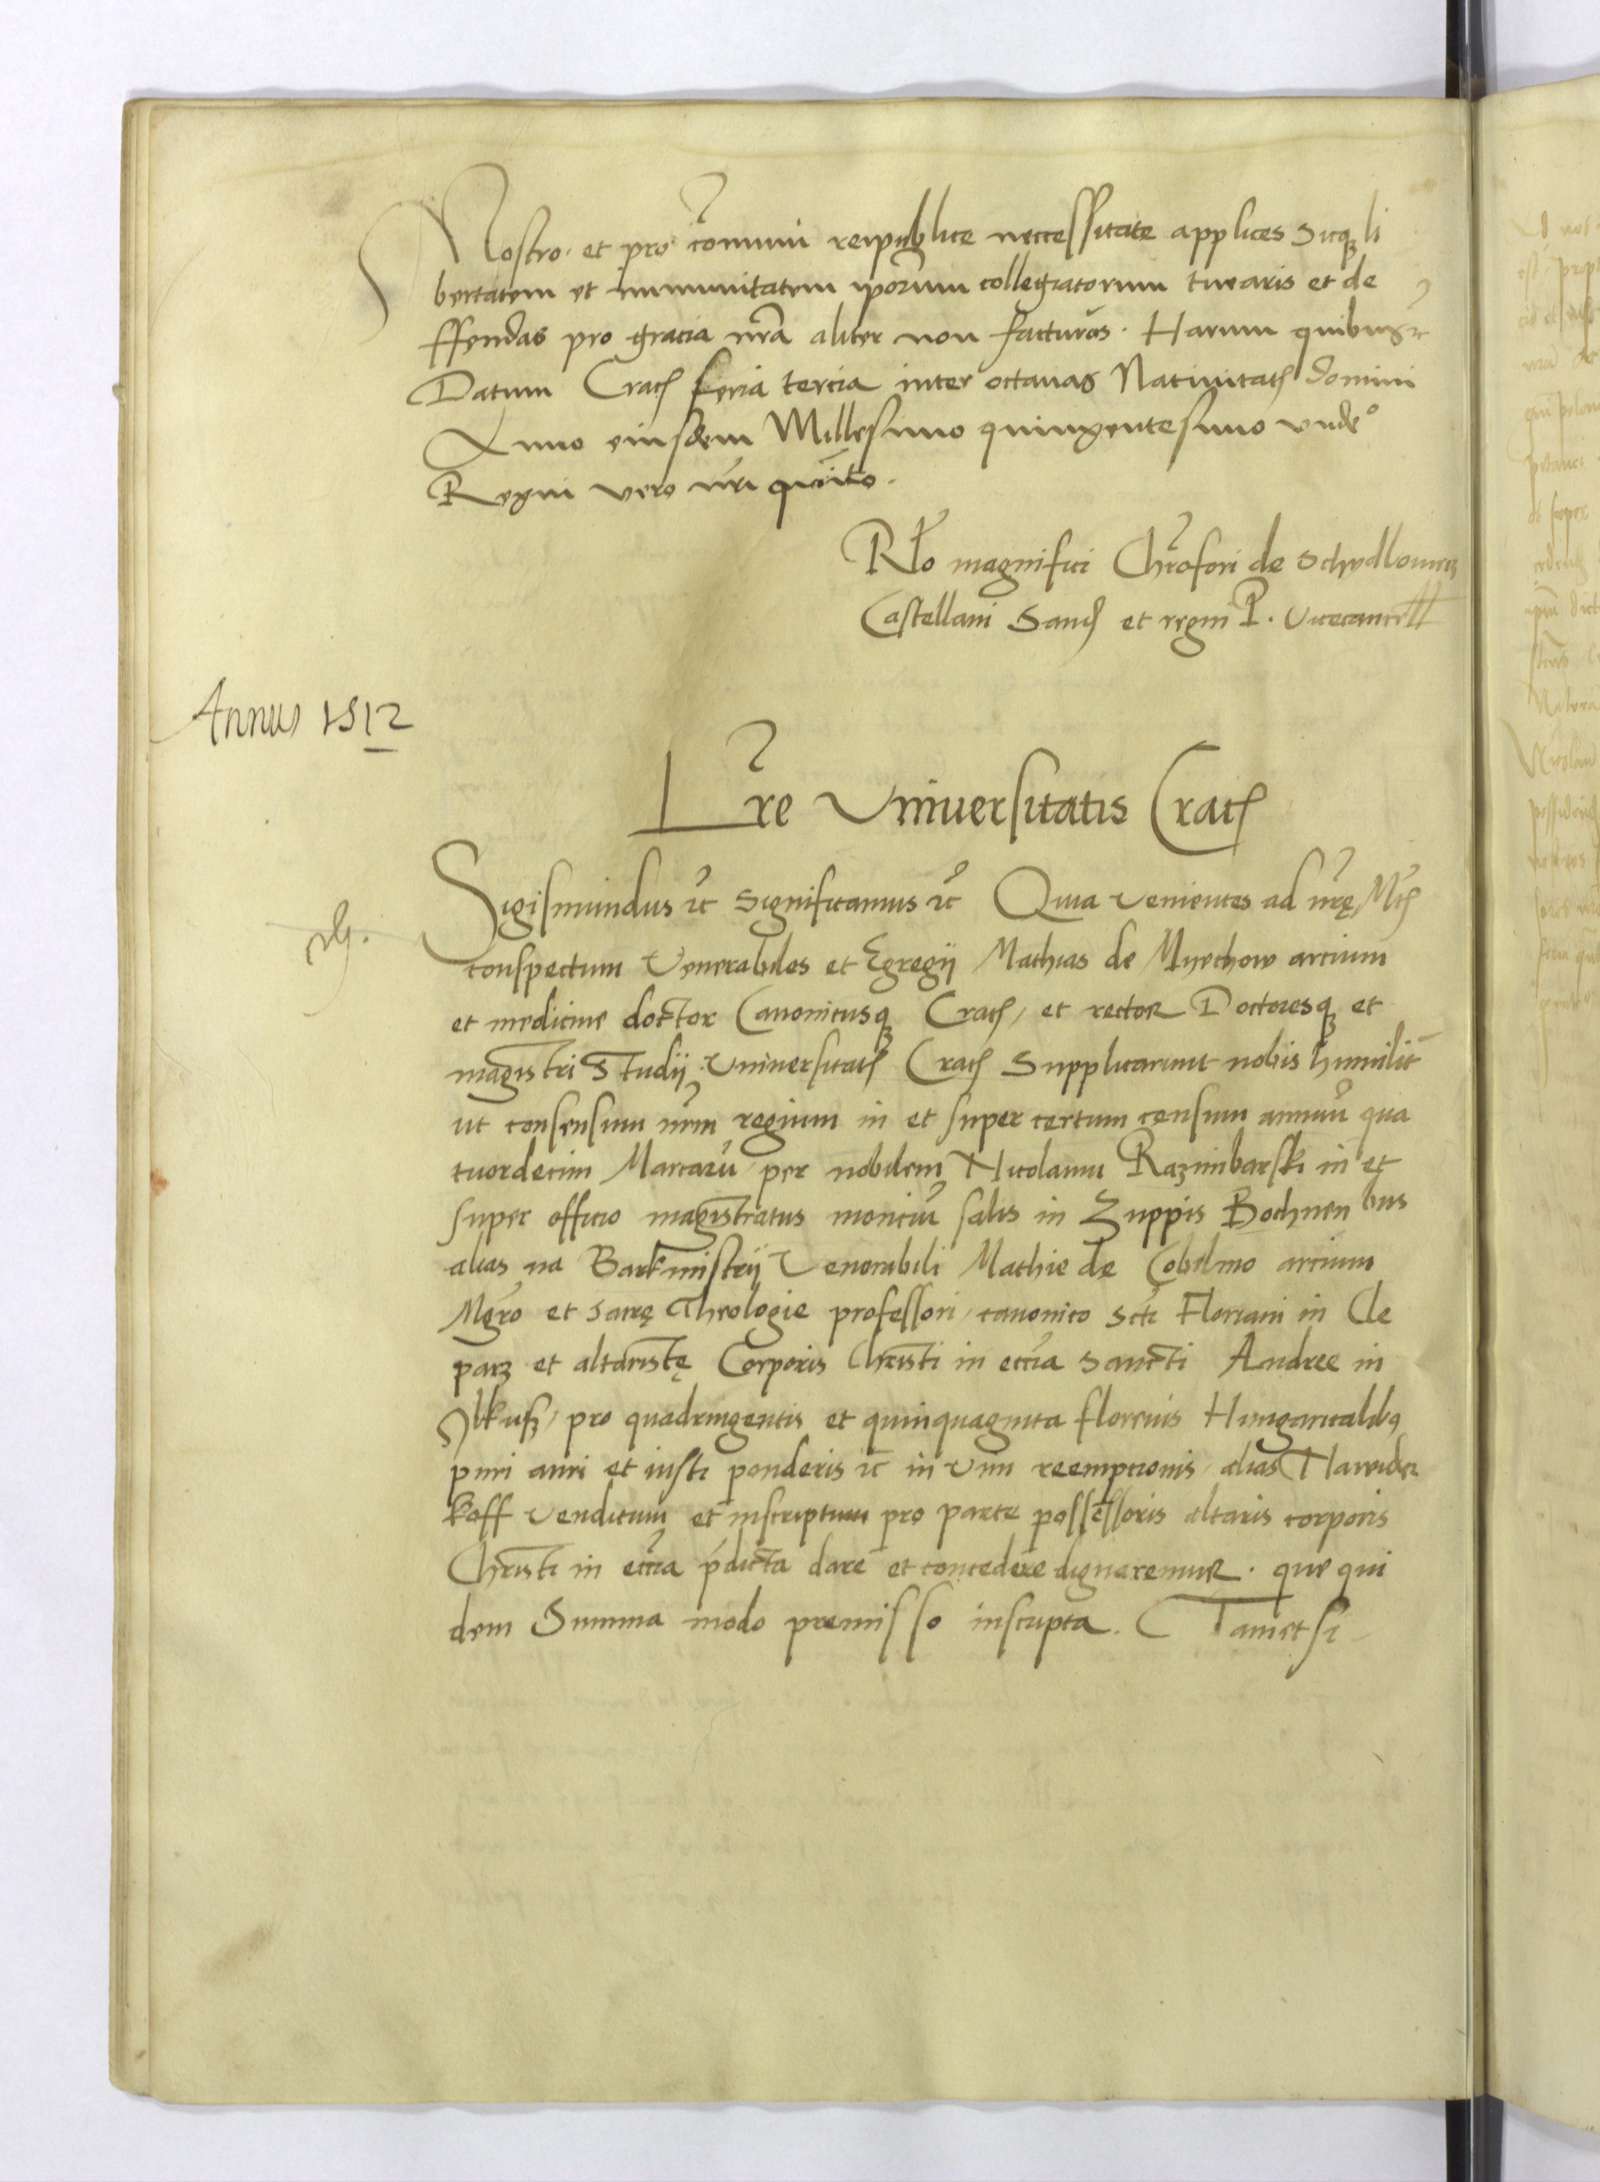 Nostro et pro com̄uni reipublice neccessitate applices Sicqz li
bertatem et immunitatem ip̄orum collegiatorum tuearis et de
ffendas pro gracia nr̄a aliter non facturus. Harum quibus rc̄
Datum Crac̄ feria tercia inter octauas Natiuitat̄ domini
Anno eiusdem Millesimo quingentesimo unde°
Regni vero nr̄i quinto.
Rl̄o magnifici Chr̄ofori de Schydlowecz
Castellani Sand̄ et regni P. Vicecancell
Annus 1512
Lr̄e Vniuersitatis Crac̄
Sigismundus rc̄ Significamus rc̄ Quia venientes ad nr̄ę Mt̄
conspectum Venerabiles et Egregij Mathias de Myechow arcium
et medicine doctor Canonicusqz Crac̄, et rector Doctoresqz et
magistri Studij Vniuersitat̄ Crac̄ Supplicarunt nobis humilit̄
ut consensum nr̄m regium in et super certum censum annuū qua
tuordecim Marcarū per nobilem Nicolaum Razimbarski in et
super officio magistratus monciū salis in Zuppis Bochnen bus
alias na Barkmistrij Venerabili Mathie de Cobilino arcium
Mgr̄o et Sacrę Theologie professori, canonico Scti Floriani in Cle
parz et altaristę Corporis Christi in eccīa Sancti Andree in
Ilkusz, pro quadringentis et quinquaginta florenis Hungaricalibꝫ
puri auri et iusti ponderis rc̄ in vim reempcionis alias Nawider
koff venditum et inscriptum pro parte possessoris altaris corporis
Christi in eccīa p̄dicta dare et concedere dignaremur. que qui
dem Summa modo premisso inscripta. Tametsi